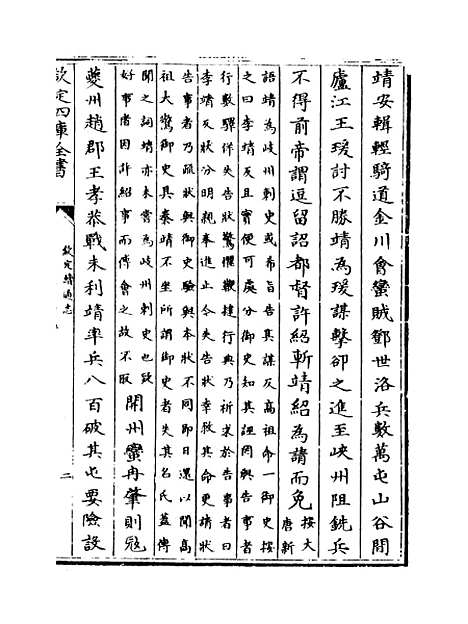 靖安輯輕騎道金川會蠻賊鄧世洛兵數萬屯山谷間
廬江王瑗討不勝靖為瑗謀擊卻之進至峽州阻銑兵
不得前帝謂逗留詔都督許紹斬靖紹為請而免
按大
唐新
語靖為岐州刺史或希旨告其謀反高祖命一御史按
之曰李靖反且實便可處分御史知其誣罔與告事者
行數驛佯失告狀驚懼鞭撻行典乃祈求於告事者曰
李靖反狀分明親奉進止今失告狀幸救其命更請狀
告事者乃疏狀與御史驗與本狀不同即日還以聞高
祖大驚御史具奏靖不坐所謂御史者失其名氏蓋傳
聞之詞靖亦未嘗為岐州刺史也殆
好事者因許紹事而傅會之故不取
開州蠻冉肇則寇
夔州趙郡王孝恭戰未利靖率兵八百破其屯要險設
欽定四庫全書
欽定續通志
二